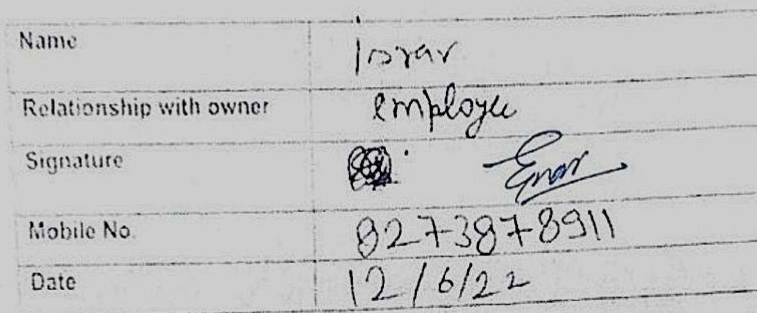 Name Israr
Relationship with owner employee
Signature
Mobile No. 8273878911
Date 12/6/22